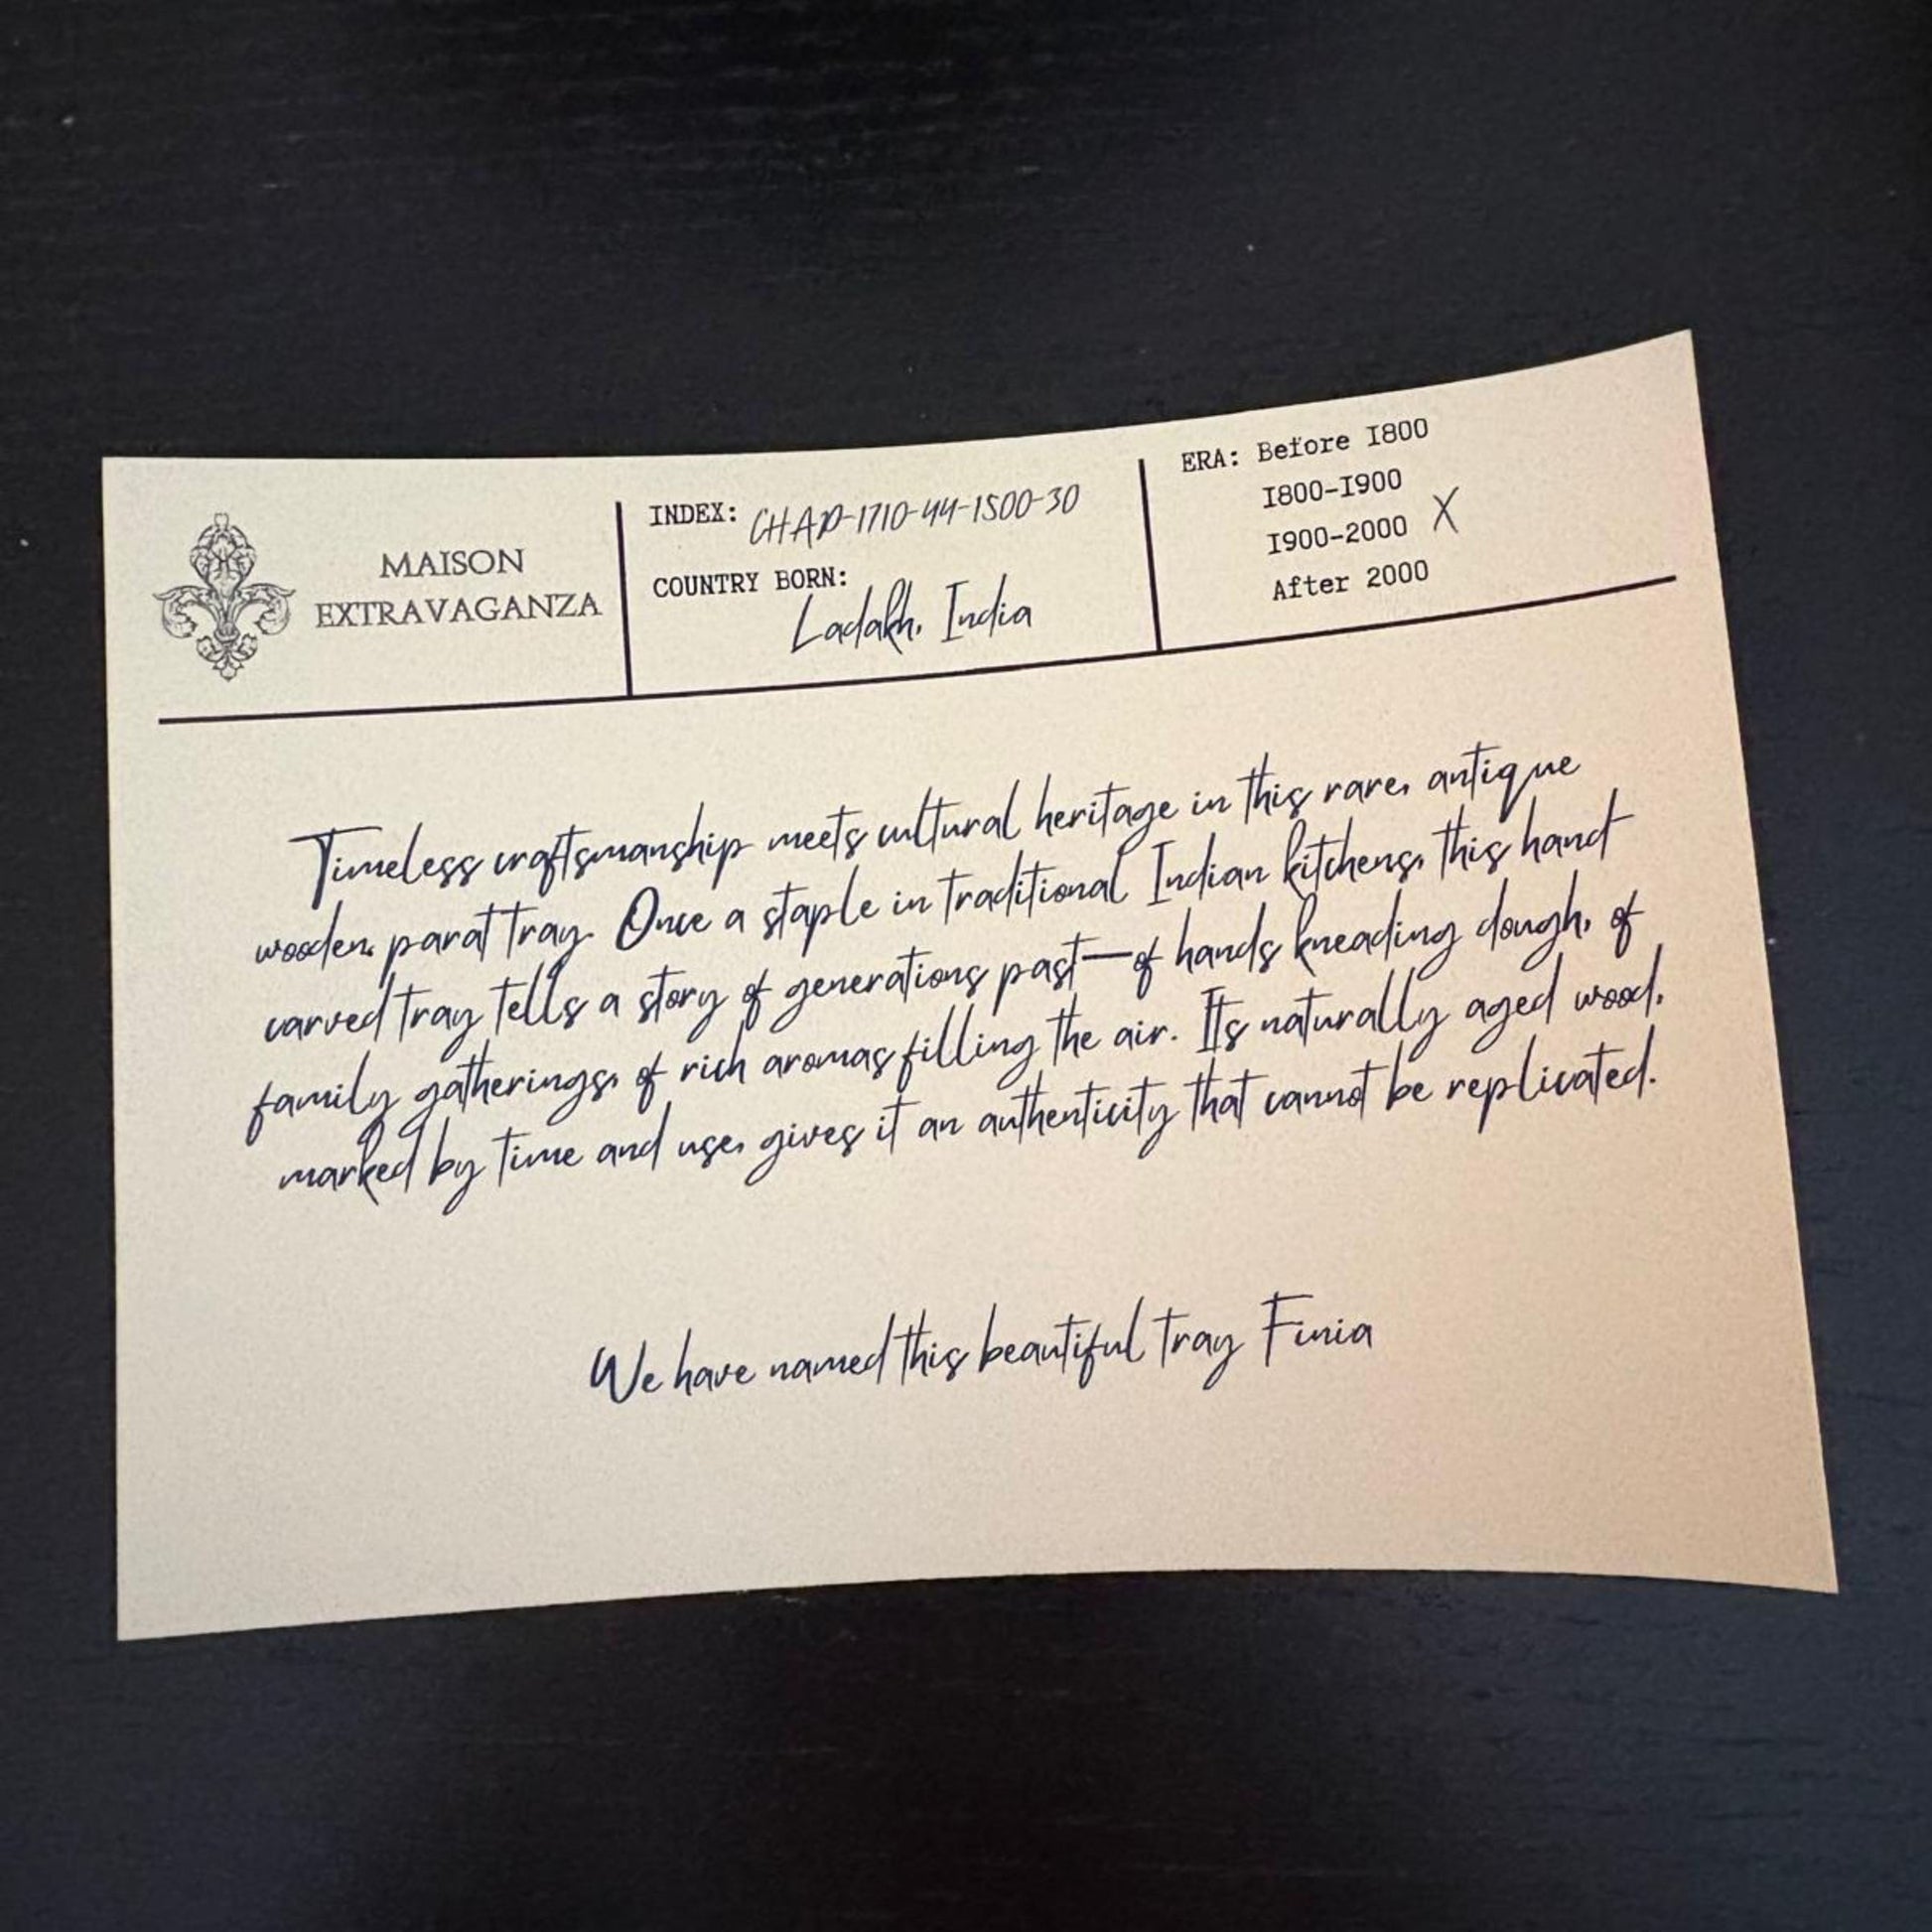 MAISON
EXTRAVAGANZA
INDEX: CHAP-1710-44-1500-30
COUNTRY BORN:
Ladakh, India
ERA: Before 1800
1800-1900
1900-2000 X
After 2000
Timeless craftsmanship meets cultural heritage in this rare, antique
wooden, parat tray. Once a staple in traditional Indian kitchens, this hand
carved tray tells a story of generations past—of hands kneading dough, of
family gatherings, of rich aromas filling the air. Its naturally aged wood,
marked by time and use, gives it an authenticity that cannot be replicated.
We have named this beautiful tray Finia